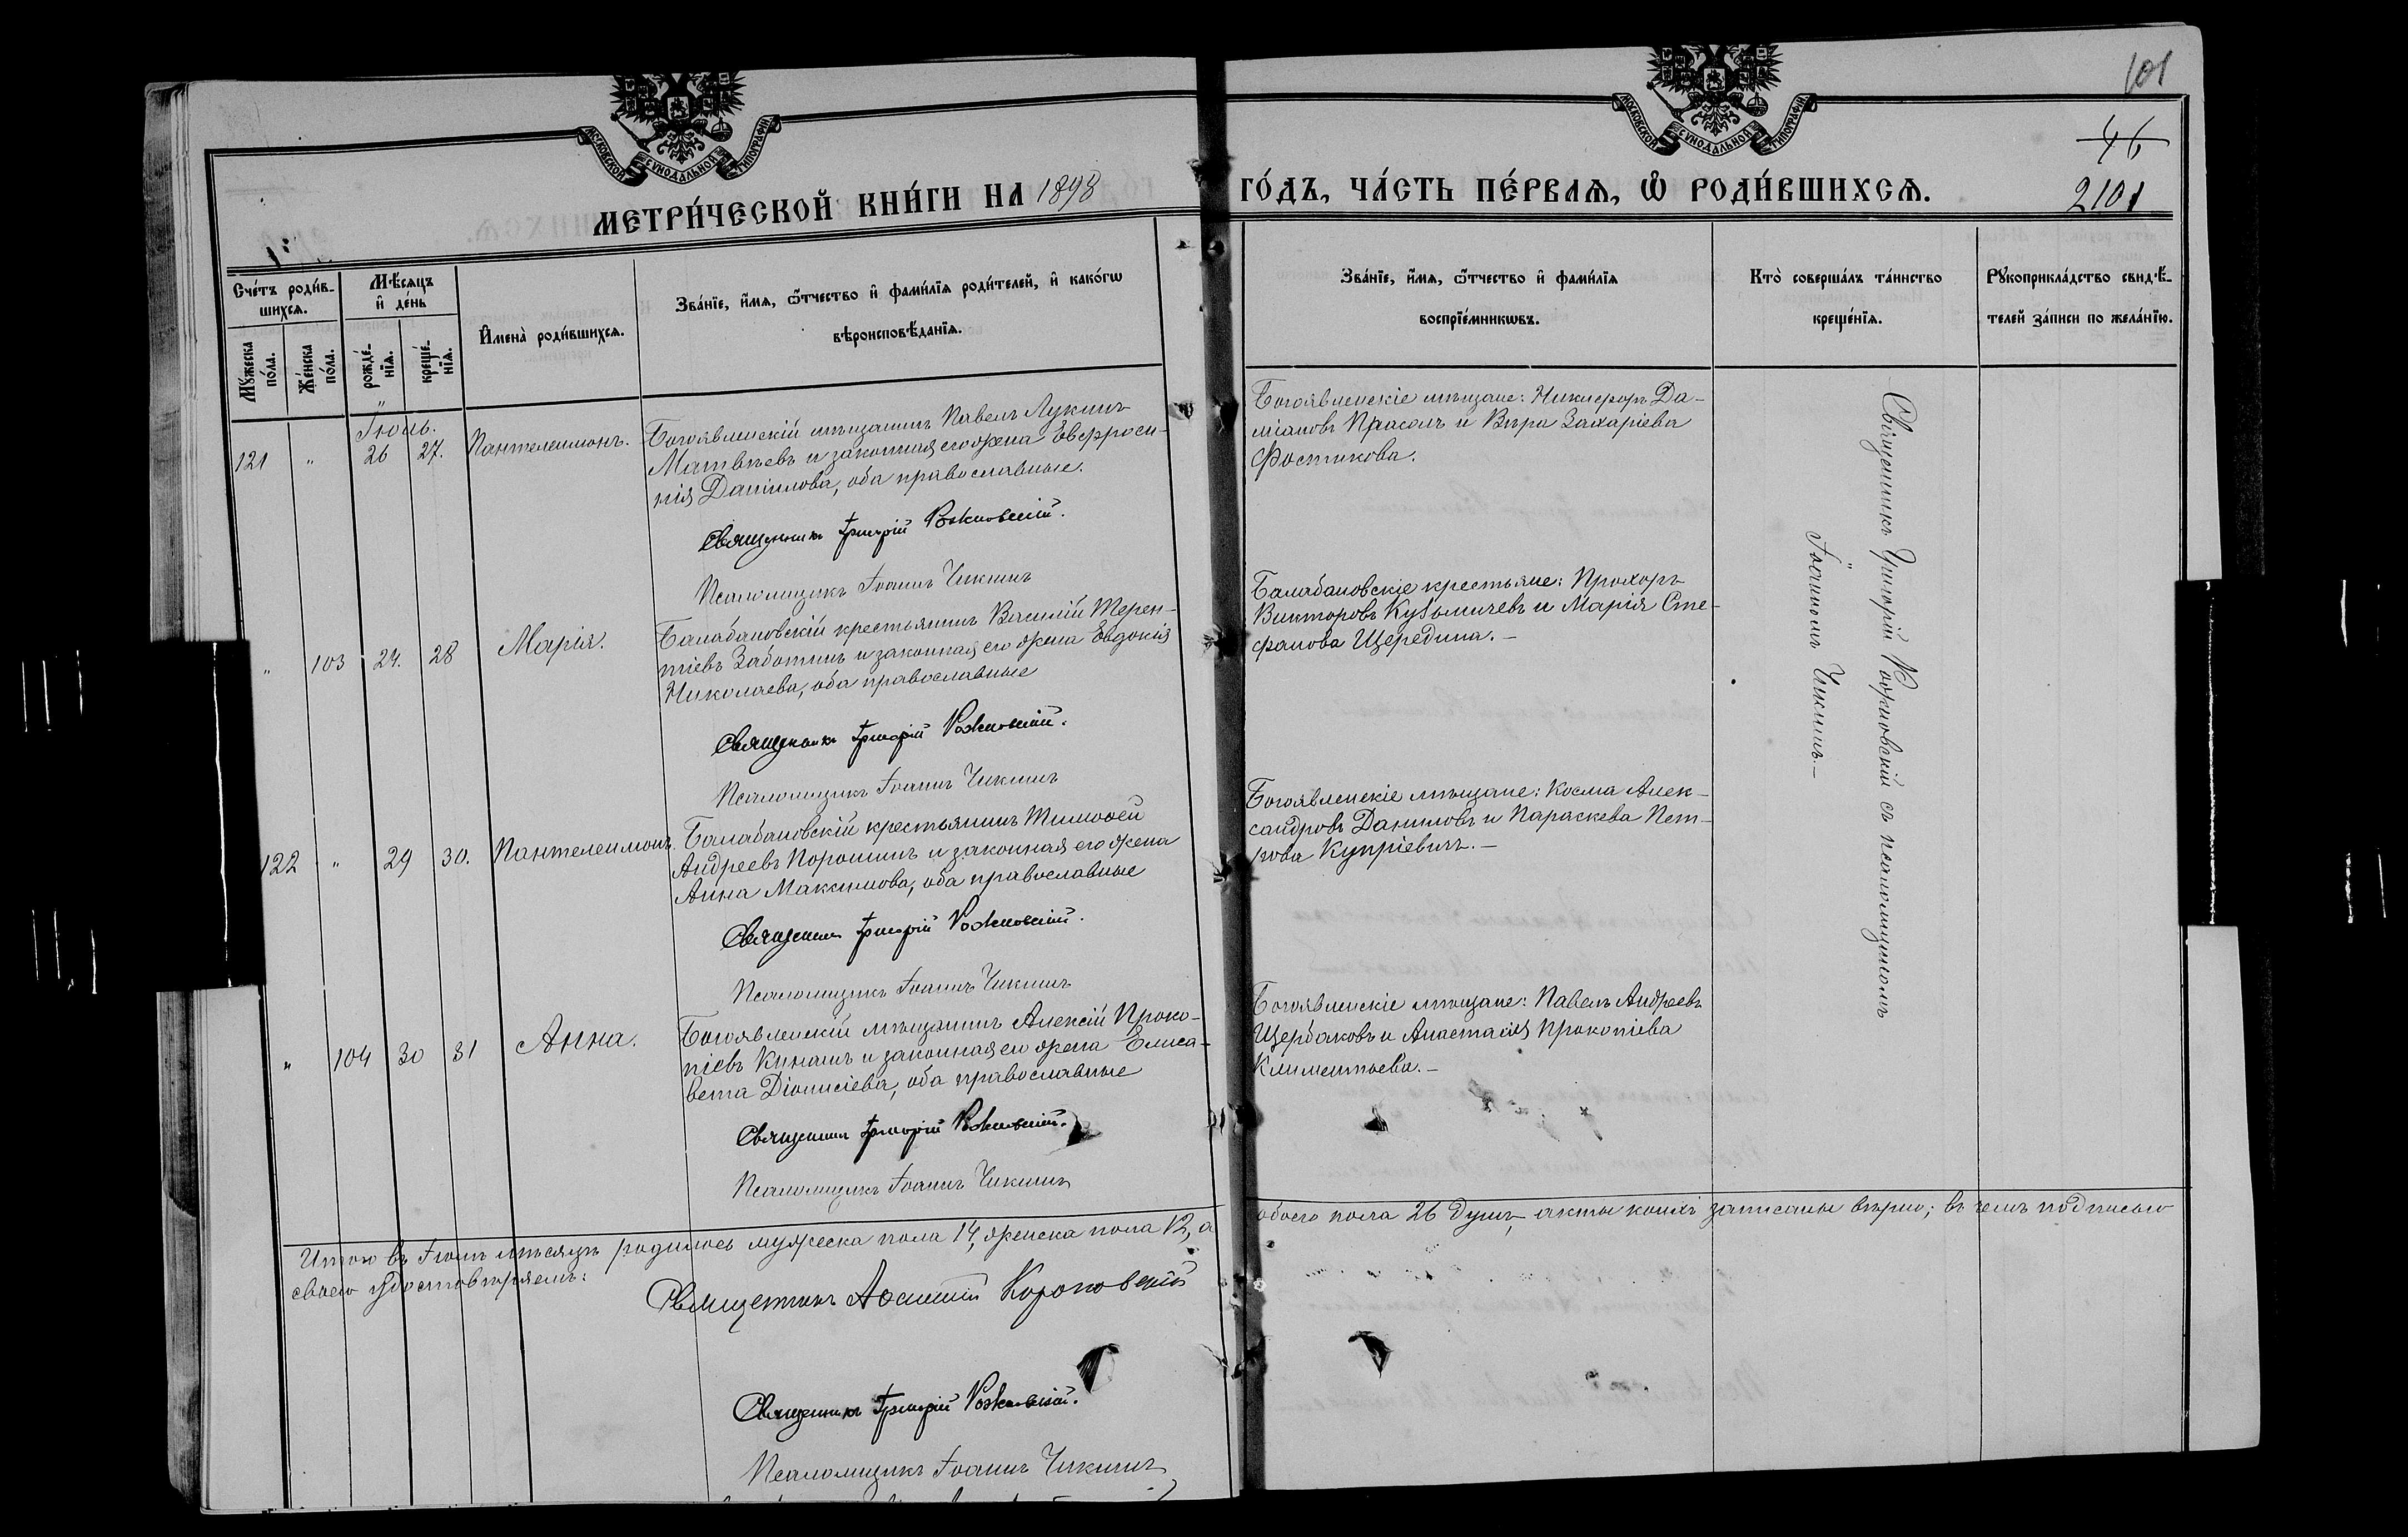 101
46
2101
МОСКОВСКОЙ СѴНОДАЛЬНОЙ ТИПОГРАФІИ
МОСКОВСКОЙ СѴНОДАЛЬНОЙ ТИПОГРАФІИ
МЕТРИ́ЧЕСКОЙ КНИ́ГИ НА 1898
ГО́ДЪ, ЧА́СТЬ ПЕ́РВАѦ, Ѡ҆ РОДИ́ВШИХСѦ.
Сче́тъ роди́в-
шихсѧ.
Мꙋ́жеска по́ла.
Же́нска по́ла.
Мѣ́сѧцъ
и҆ де́нь
рожде́-
нїѧ.
креще́-
нїѧ.
И҆мена̀ роди́вшихсѧ.
Зва́нїе, и҆́мѧ, ѻ҆́тчество и҆ фами́лїѧ роди́телей, и҆ како́гѡ
вѣроисповѣ́данїѧ.
Зва́нїе, и҆́мѧ, ѻ҆́тчество и҆ фами́лїѧ
воспрїе́мникѡвъ.
Кто̀ соверша́лъ та́инство
креще́нїѧ.
Рꙋкоприкла́дство свидѣ́-
телей за́писи по жела́нїю.
Іюль.
121 " 26 27. Пантелеимонъ.
Богоявленскій мѣщанинъ Павелъ Лукинъ
Матвѣевъ и законная его жена Евфроси-
нія Даніилова, оба православные.
Священникъ Григорій Рожновскій.
Псаломщикъ Іоаннъ Чикинъ
Богоявленскіе мѣщане: Никифоръ Да-
міановъ Прасолъ и Вѣра Захаріева
Фостикова.
" 103 24. 28 Марія.
Балабановскій крестьянинъ Василій Терен-
тіевъ Заботинъ и законная его жена Евдокія
Николаева, оба православные
Священникъ Григорій Рожновскій.
Псаломщикъ Іоаннъ Чикинъ
Балабановскіе крестьяне: Прохоръ
Викторовъ Кузьмичевъ и Марія Сте-
фанова Щередина.-
122 " 29 30. Пантелеимонъ.
Балабановскій крестьянинъ Тимоѳей
Андреевъ Порошинъ и законная его жена
Анна Максимова, оба православные
Священникъ Григорій Рожновскій.
Псаломщикъ Іоаннъ Чикинъ
Богоявленскіе мѣщане: Косма Алек-
сандровъ Даниловъ и Параскева Пет-
рова Купріевичъ.-
" 104 30 31 Анна.
Богоявленскій мѣщанинъ Алексій Проко-
піевъ Кинашъ и законная его жена Елиса-
вета Діонисіева, оба православные
Священникъ Григорій Рожновскій.
Псаломщикъ Іоаннъ Чикинъ
Богоявленскіе мѣщане: Павелъ Андреевъ
Щербаковъ и Анастасія Прокопіева
Климентьева.-
Священникъ Григорій Рожновскій съ псаломщикомъ
Іоанномъ Чикинъ.-
Итого въ Іюлѣ мѣсяцѣ родилось мужеска пола 14, женска пола 12, а
обоего пола 26 душъ, акты коихъ записаны вѣрно; въ чемъ подписью
своею удостовѣряемъ:
Священникъ Коротовскій
Священникъ Григорій Рожновскій.
Псаломщикъ Іоаннъ Чикинъ